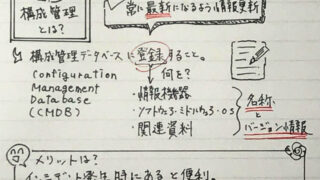 構成管理
とは?
常に最新になるよう情報更新!
構成管理データベースに登録すること。
Configuration
Management
Database
(CMDB)
何を?
・情報機器
・ソフトウェア・ミドルウェア・OS
・関連資料
名称
と
バージョン情報
メリットは?
インシデント発生時にあると便利。